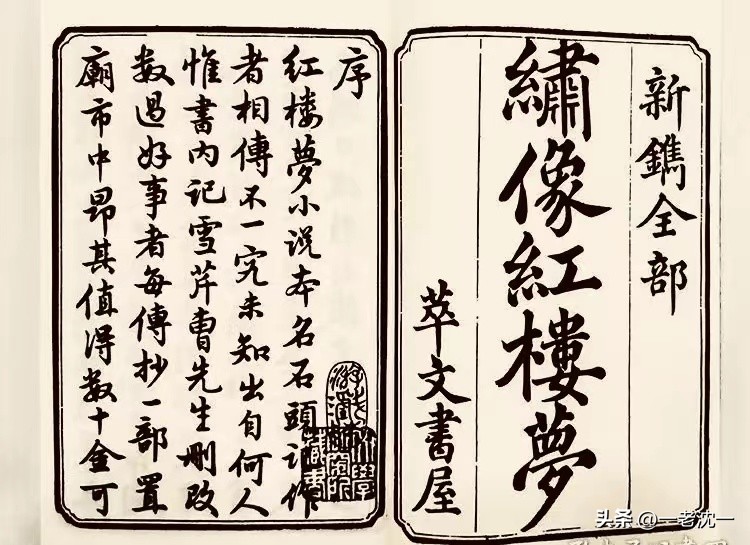 新鐫全部
繡像紅樓夢
萃文書屋
序
紅楼夢小说本名石頭记作
者相傳不一究未知出自何人
惟書内记雪芹曹先生刪改
数過好事者每傳抄一部置
廟市中昂其值得数十金可
头条 @一老沈一